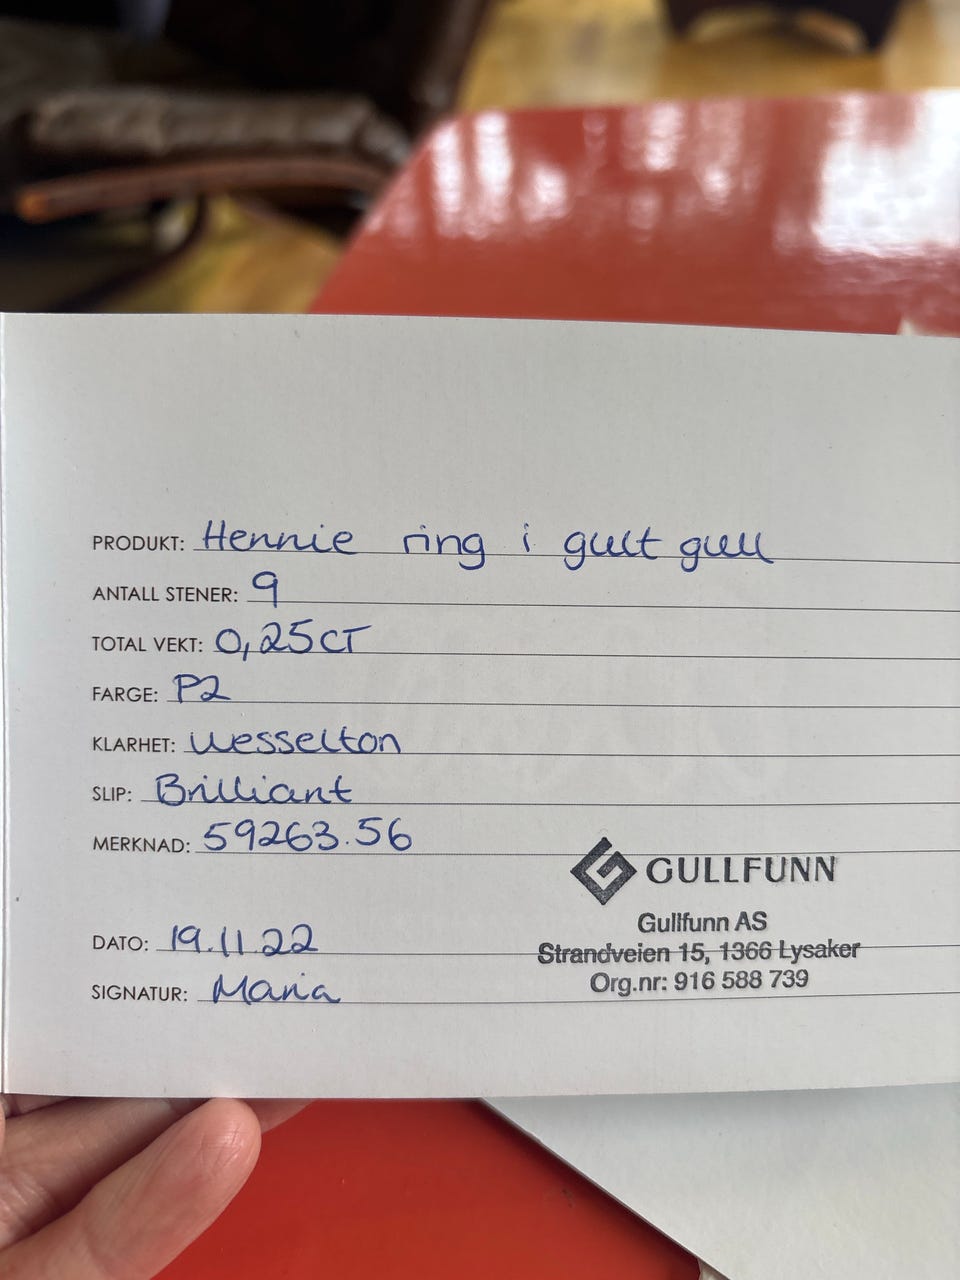 PRODUKT: Hennie ring i gult gull
ANTALL STENER: 9
TOTAL VEKT: 0,25CT
FARGE: P2
KLARHET: Wesselton
SLIP: Brilliant
MERKNAD: 59263.56
GULLFUNN
Gullfunn AS
Strandveien 15, 1366 Lysaker
Org.nr: 916 588 739
DATO: 19.11.22
SIGNATUR: Maria